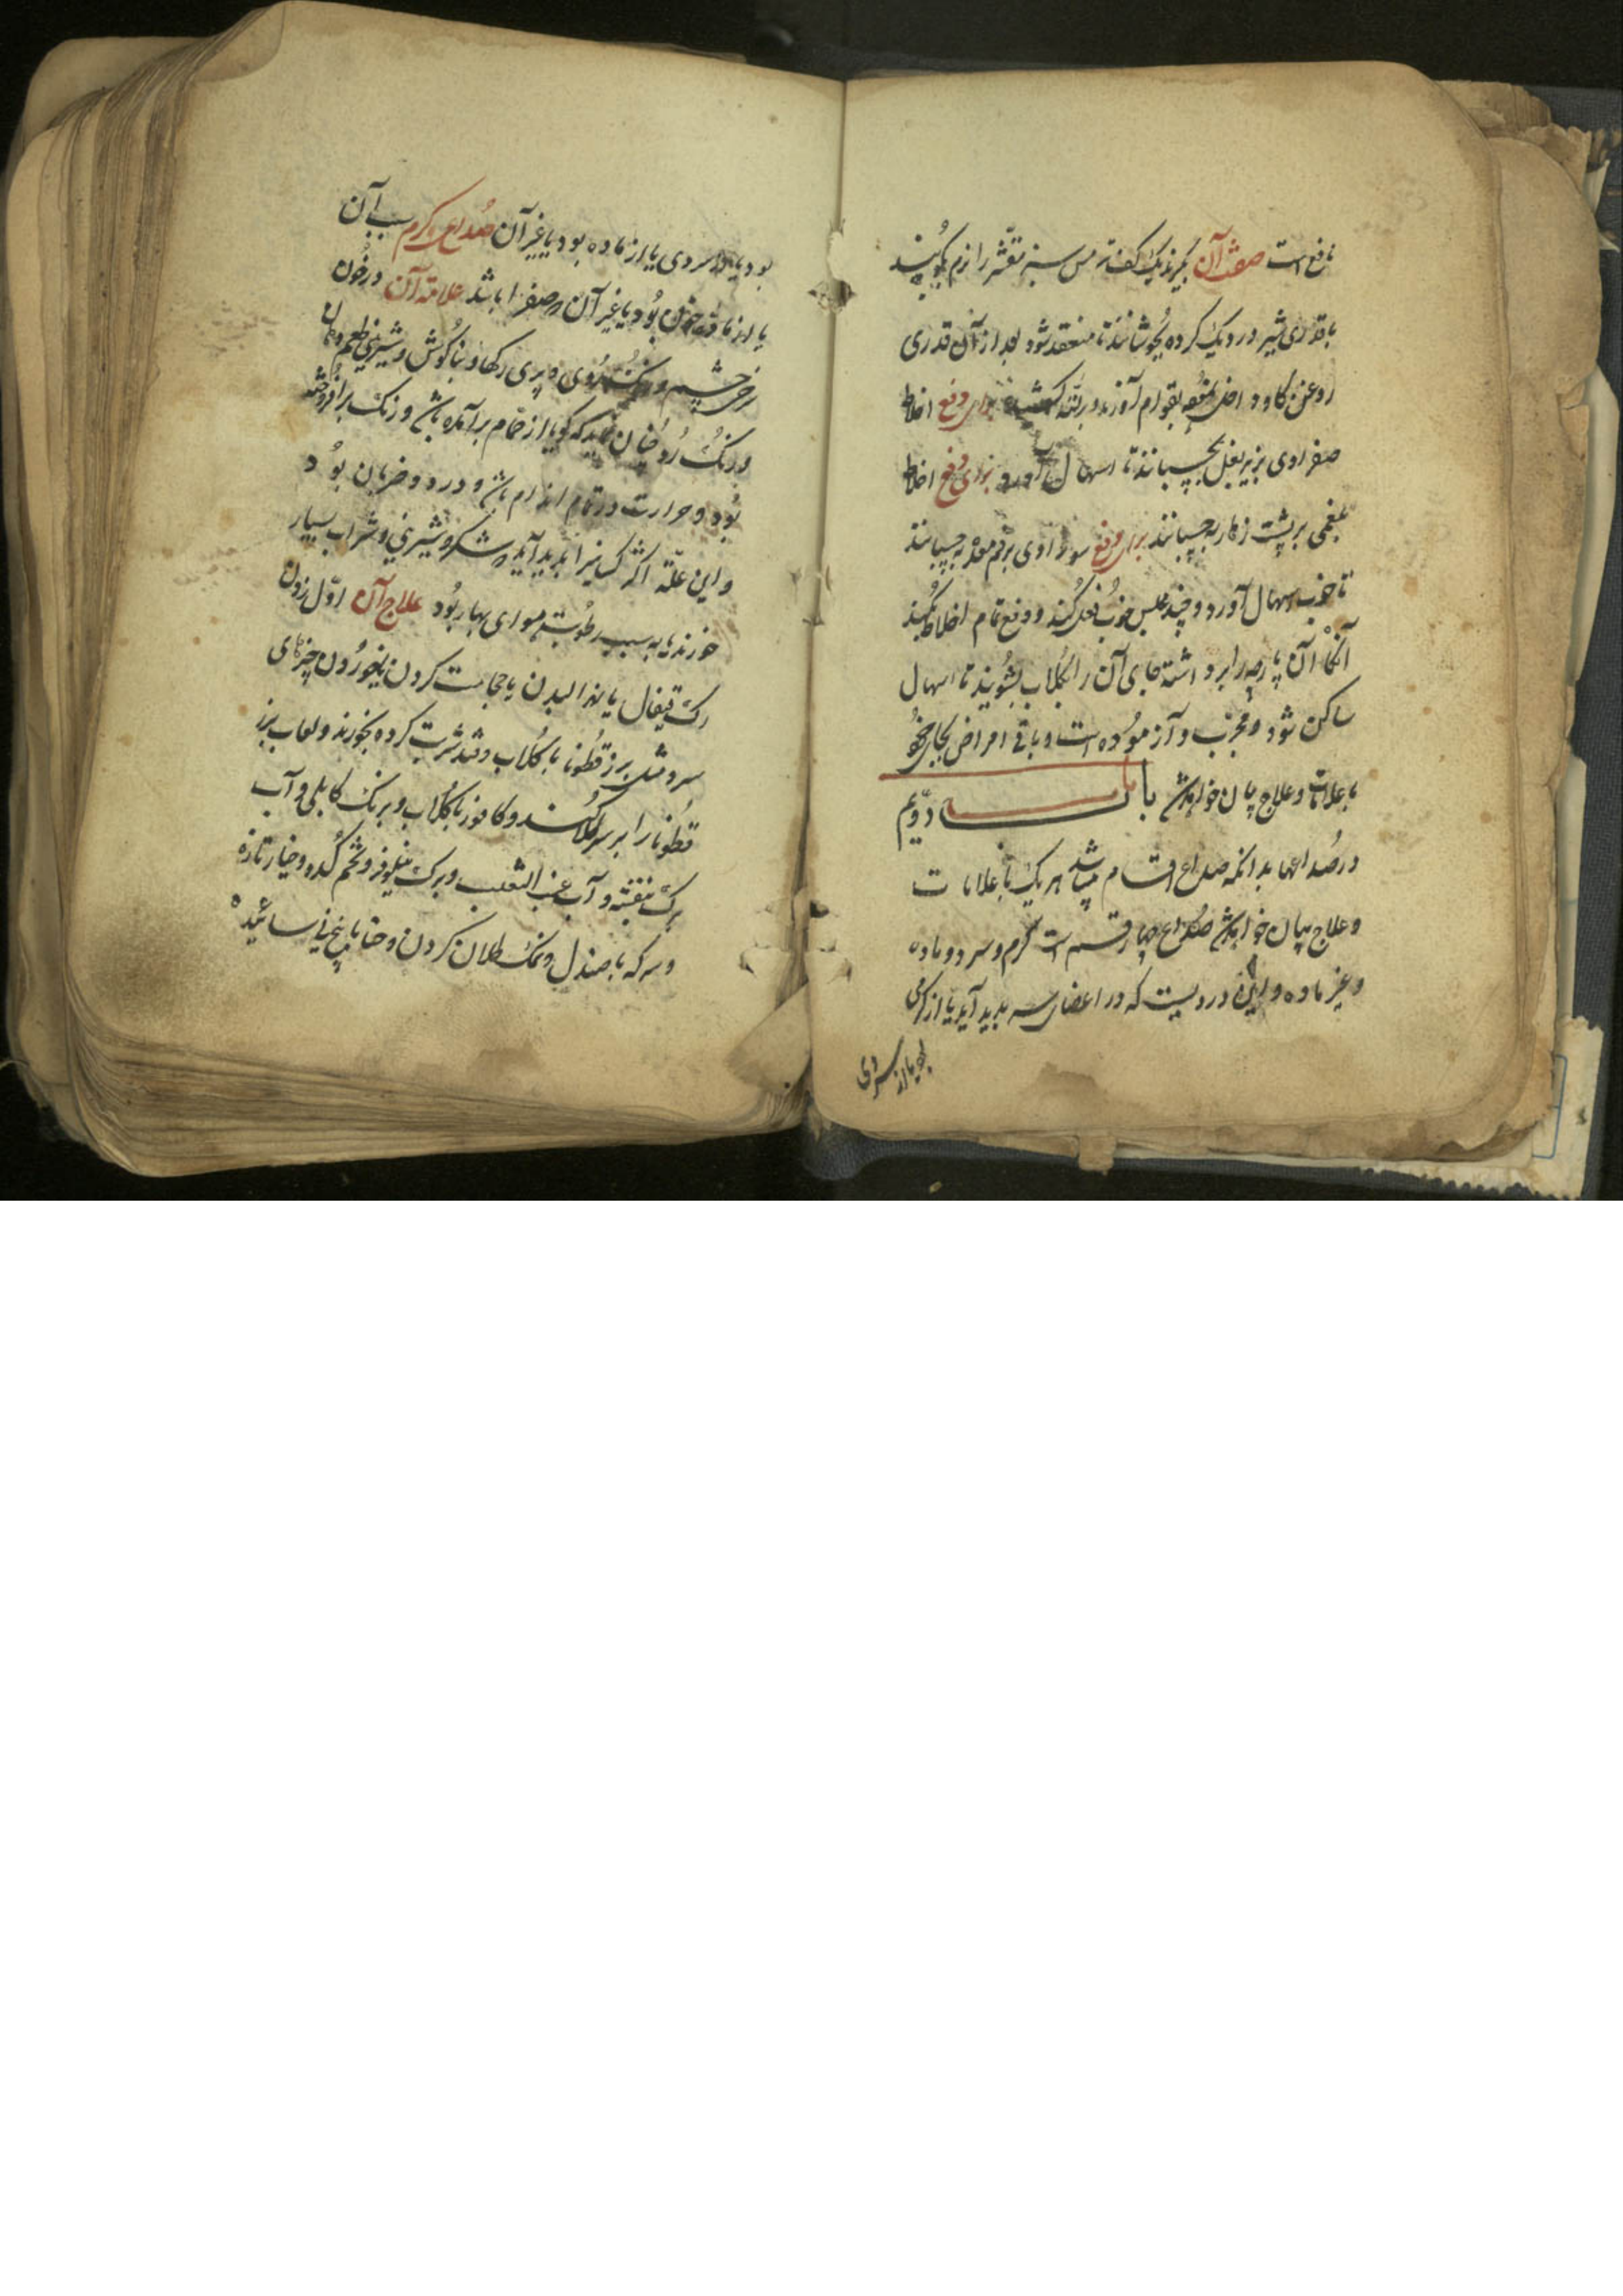 نافع است صفت آن بگیرند یک کف ترمس سبز مقشر را نرم بکوبند
با قدری شیر در دیک کرده بجوشانند تا منعقد شود بعد از آن قدری
روغن کاو داخل بقوام آورند و برلته برای دفع اخلاط
صفراوی بزیر بغل بچسپانند تا اسهال آورد برای دفع اخلاط
بلغمی بر پشت زهار به چسپانند برای دفع سوداوی بر فم معده به چسپانند
تا خوب اسهال آورد و چند مجلس خوب فعل کند و دفع تمام اخلاط بکند
آنکاه آن پارچه را برداشته جای آن را بکلاب بشویند تا اسهال
ساکن شود و مجرب و آزموده است و باقی امراض بجای خود
با علامات و علاج بیان خواهد شد باب دویم
در صداعها بدانکه صداع اقسام میباشد هر یک با علامات
و علاج بیان خواهد شد صداع چهار قسم است گرم و سرد و ماده
و غیر ماده و این دردیست که در اعضای سر پدید آید یا از گرمی
بود یا از سردی
بود یا از سردی یا از ماده بود یا غیر آن صداع کرم سبب آن
یا از ماده خون بود یا غیر آن و صفرا باشد علامة آن در خون
سرخی چشم و روی و پری رکها و بناکوش و شیرینی طعم دهان
و رنک رو چنان نماید که کویا از حمام برآمده باشد و رنک برافروخته
بود و حرارت در تمام اندام باشد و درد و ضربان بود
و این علة اکثر کسانیرا پدید آید و شکر و شیرینی و شراب بسیار
خورند یا به سبب رطوبت هوای بهار بود علاج آن اول زدن
رک قیفال یا نهر البدن یا حجامت کردن یا خوردن چیزهای
سرد مثل بزر قطونا با کلاب و قند شربت کرده بخورند و لعاب بزر
قطونا را بر سر طلا کنند و کافور با کلاب و برنک کابلی و آب
برک بنفشه و آب عنب الثعلب و برک نیلوفر و تخم کدو و خیار تازه
و سرکه با صندل و نمک طلا کردن و حنا با بیخ نی سائیده